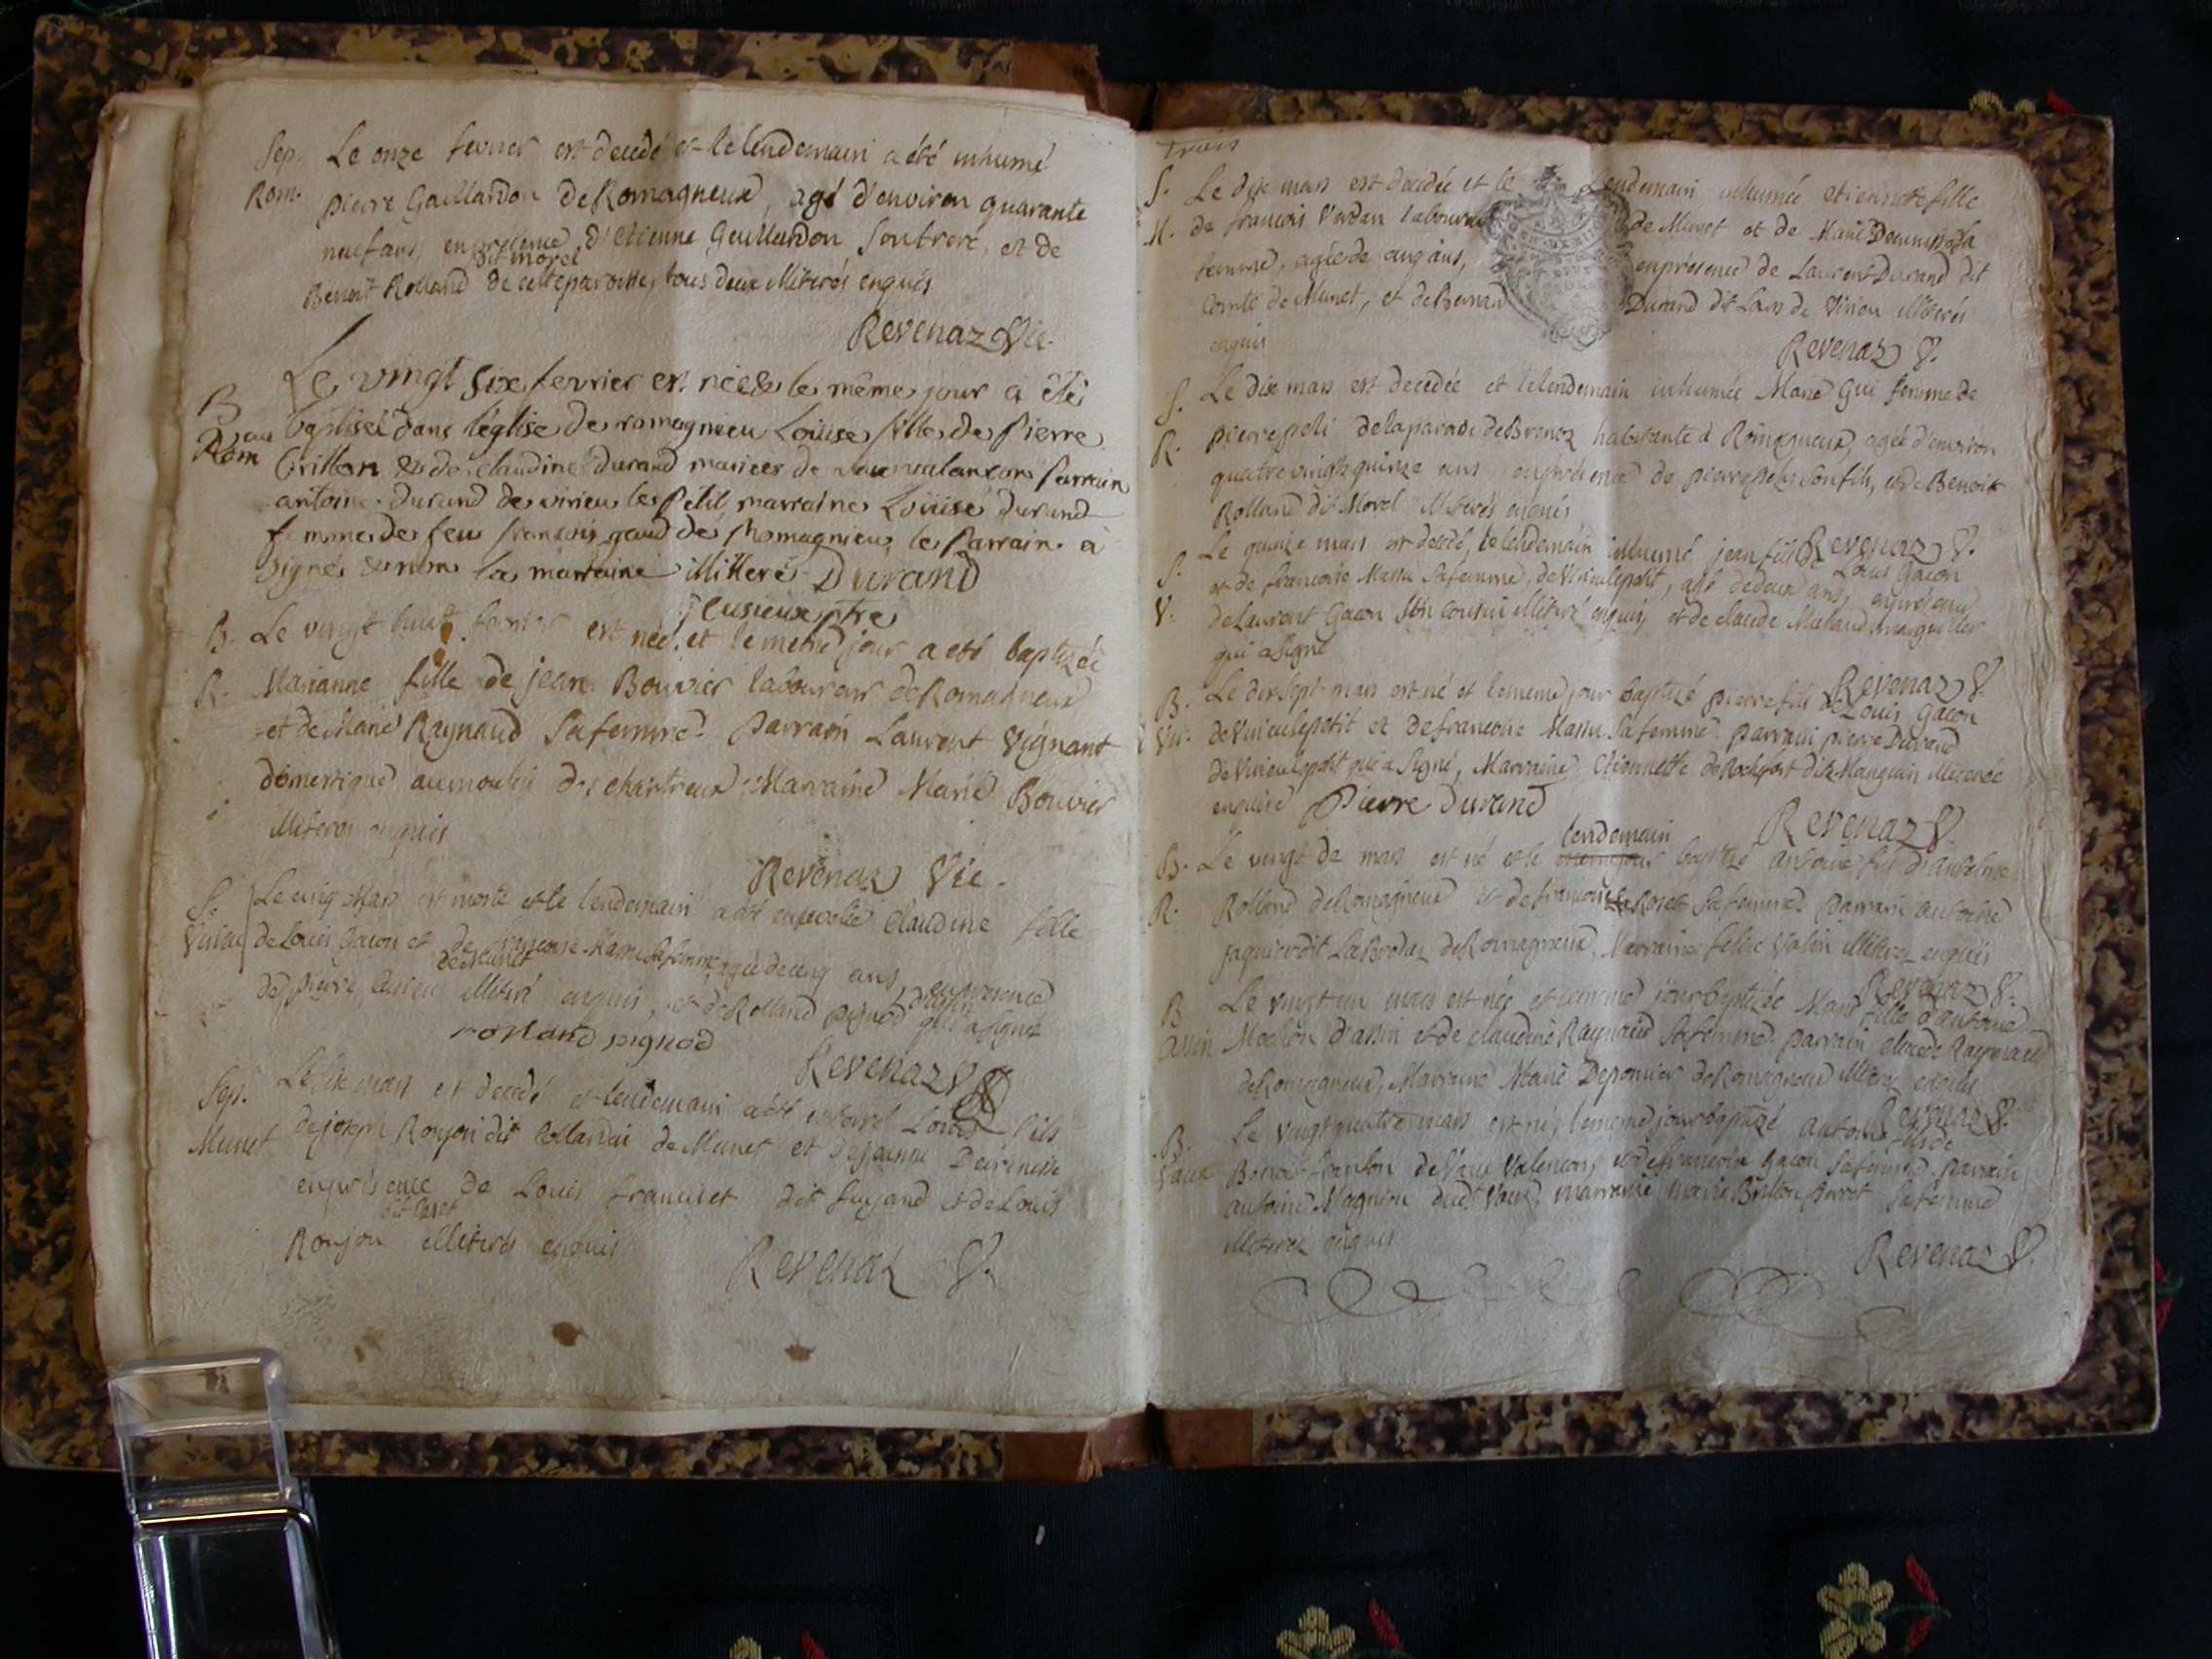 Sep. Le onze fevrier est decedé et le lendemain a été inhumé
Rom. pierre Gaillardon de Romagneux, agé d'environ quarante
neuf ans, en presence d'Etienne Gaillardon son frere, et de
dit morel
Benoit Rolland de cette paroisse, tous deux illiterés enquis
Revenaz Vic.
Le vingt six fevrier est née & le même jour a été
B au baptisée dans l'église de romagnieu Loüise fille de Pierre
Rom Brillon & de claudine durand mariees de Parrain
antoine durand de virieu le Petit marraine Loüise durand
femme de feu françois gaud de Romagnieu le Parrain a
signé & non la marraine illitteré Durand
Cusieux ptre
B. Le vingt huit fevrier est née, et le meme jour a eté baptizée
R. Marianne fille de jean Bouvier laboureur de Romagneux
et de Marie Raynaud sa femme. Parrain Laurent Vignant
domestique au moulin des chartreux, Marraine Marie Bouvier
illiteres enquis
Revenaz Vic.
S. Le cinq Mars est morte et le lendemain a été Claudine fille
Virieu de Louis Gacon et de francoise Massu sa femme agée de cinq ans, en presence
de Munet
de pierre illiteré enquis, et de Rolland pignod qui a signé
rolland pignod
Revenaz V.
Sep. Le mars est decedé et lendemain a été enterré Louis fils
Munet de joseph Ronjon dit Collardin de Munet et de jeanne
en presence de Louis francillet dit et de Louis
Ronjon illiterés enquis
Revenaz V.
Trois
S. Le dix mars est decedée et le lendemain inhumée etiennette fille
M. de francois Verdan laboureur de Munet et de Marie sa
femme, agée de cinq ans, en presence de Laurent Durand dit
Comte de Munet, et de Bernard Durand dit Lans de Virieu illiterés
enquis
Revenaz V.
S. Le dix mars est decedée et le lendemain inhumée Marie Gui femme de
R. pierre poli de la paroisse de Brenaz habitante à Romagneux, agée d'environ
quatre vingts quinze ans en presence de pierre poli son fils, et de Benoit
Rolland dit Morel illiterés enquis
Revenaz V.
S. Le quinze mars est decedé, le lendemain inhumé jean fils de Louis Gacon
V. et de francoise Massu sa femme, de Virieu le petit, agé de deux ans, en presence
de Laurent Gacon son cousin illiteré enquis, et de claude Michaud marguiller
qui a signé
Revenaz V.
B. Le dix sept mars est né et le meme jour baptizé pierre fils de Louis Gacon
Vir. de Virieu le petit et de francoise Massu sa femme. parrain pierre Durand
de Virieu le petit qui a signé, Marraine Etiennette de Rochefort dite Manguin illiterée
enquise Pierre Durand
Revenaz V.
lendemain
B. Le vingt de mars est né et le baptizé antoine fils d'anthelme
R. Rolland de Romagneux et de francoise Roset sa femme. parrain antoine
jaquier dit de Romagneux, Marraine illiterez enquis
Revenaz V.
B Le vingt un mars est née et le meme jour baptizée Marie fille d'antoine
assin Mochon d'assin et de claudine Raynaud sa femme. parrain claude Raynaud
de Romagneux, Marraine Marie Deponcier de Romagneux illiterez enquis
Revenaz V.
B. Le vingt quatre mars est né, le meme jour baptizé antoine fils de
Vaux Benoit de Vaux Valencon, et de francoise Gacon sa femme. parrain
antoine Magnieu dudt Vaux, marraine marie Brillon sa femme
illiterez enquis
Revenaz V.